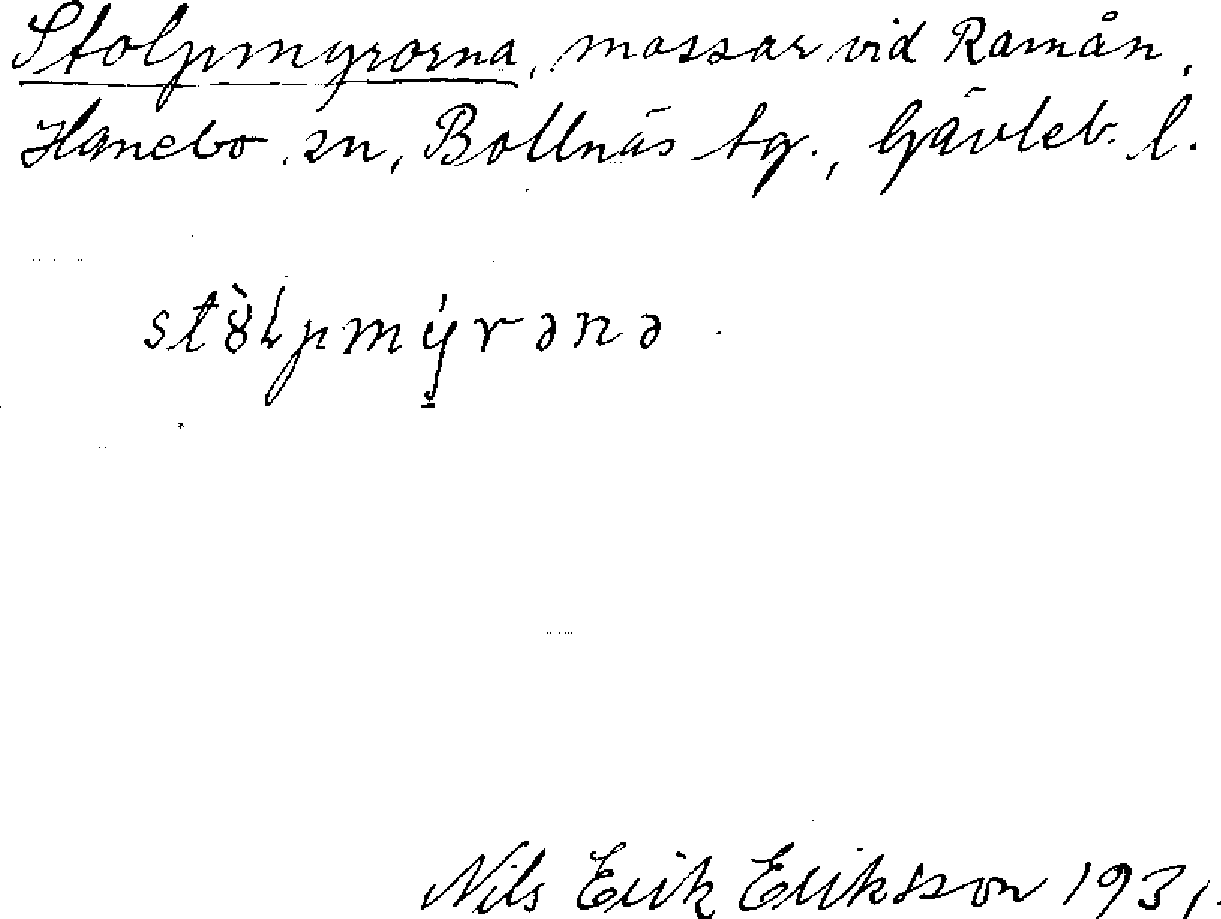 Stolpmyrorna, mossar vid Ramån,
Hanebo sn, Bollnäs tg., Gävleb. l.
Nils Erik Eriksson 1931.